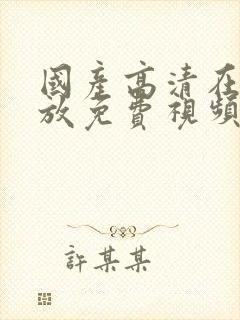 國產高清在
放免費視頻
許某某